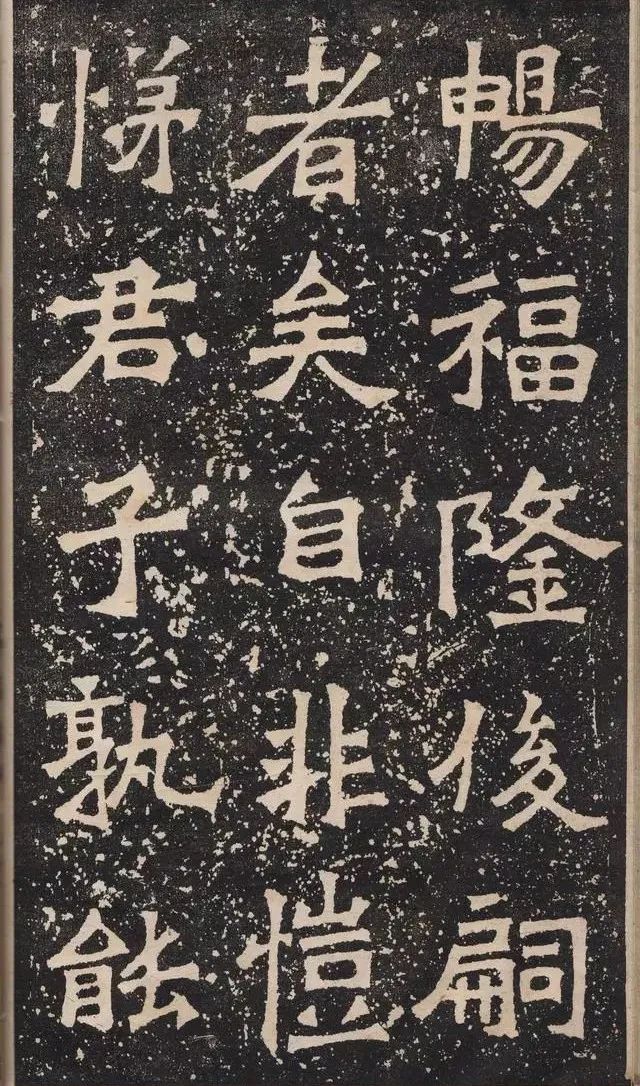 暢福隆後嗣
者矣自非愷
悌君子孰能